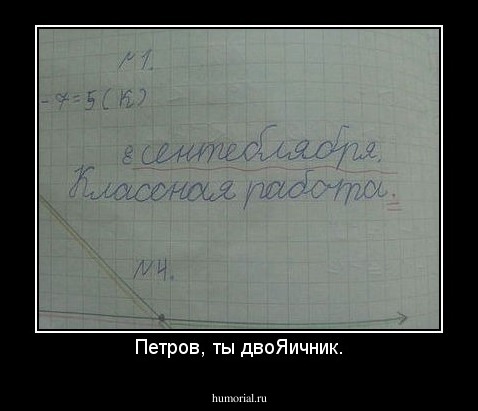 №1.
- 7=5(К)
8 сентеблября.
Классная работа.
№4.
Петров, ты двоЯичник.
humorial.ru